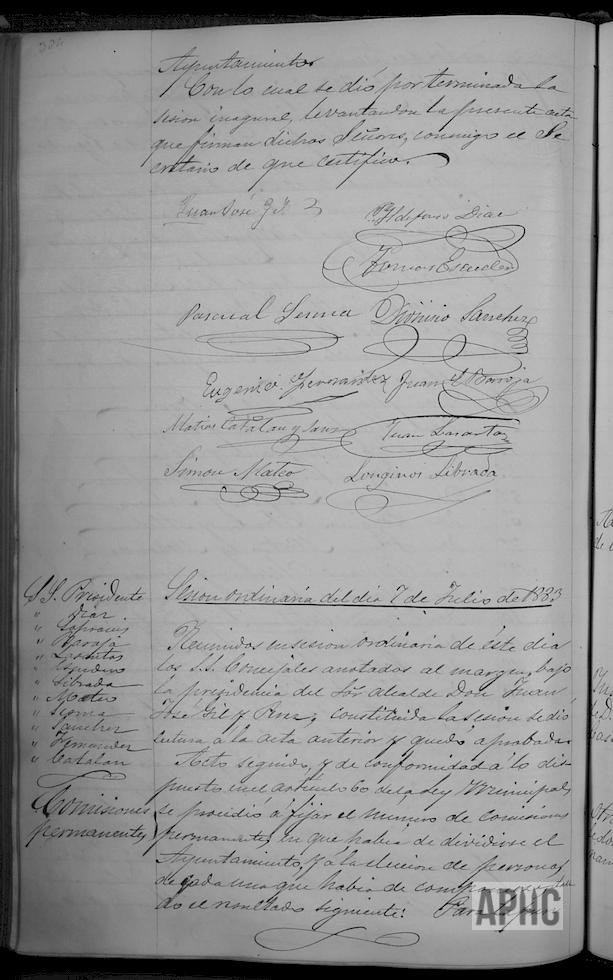 384
Ayuntamiento.
Con lo cual se dió por terminada la
sesion inaugural, levantandose la presente acta
que firman dichos Señores, conmigo el Se
cretario de que certifico.
Juan José Gil
Yldefonso Diaz
Tomas Escudero
Pascual Serma Dionicio Sanchez
Eugenio Fernandez Juan Baraja
Matias Catalan y Sanz Juan Lasanta
Simon Mateo Longinos Librada
S.S. Presidente
" Diaz
" Baraja
" Lasanta
" Escudero
" Librada
" Mateo
" Serma
" Sanchez
" Fernandez
" Catalan
Comisiones
permanentes
Sesion ordinaria del dia 7 de Julio de 1883
Reunidos en sesion ordinaria de este dia
los S.S. Concejales anotados al margen, bajo
la presidencia del Sor Alcalde Don Juan
José Gil y Ruiz; constituida la sesion se dio
lectura a la acta anterior y quedó aprobada.
Acto seguido, y de conformidad a lo dis
puesto en el artículo 60 de la ley Municipal,
se procedió á fijar el numero de comisiones
permanentes en que habia de dividirse el
Ayuntamiento, y a la eleccion de personas
de cada una que habia de
do el resultado siguiente: Para
APHC